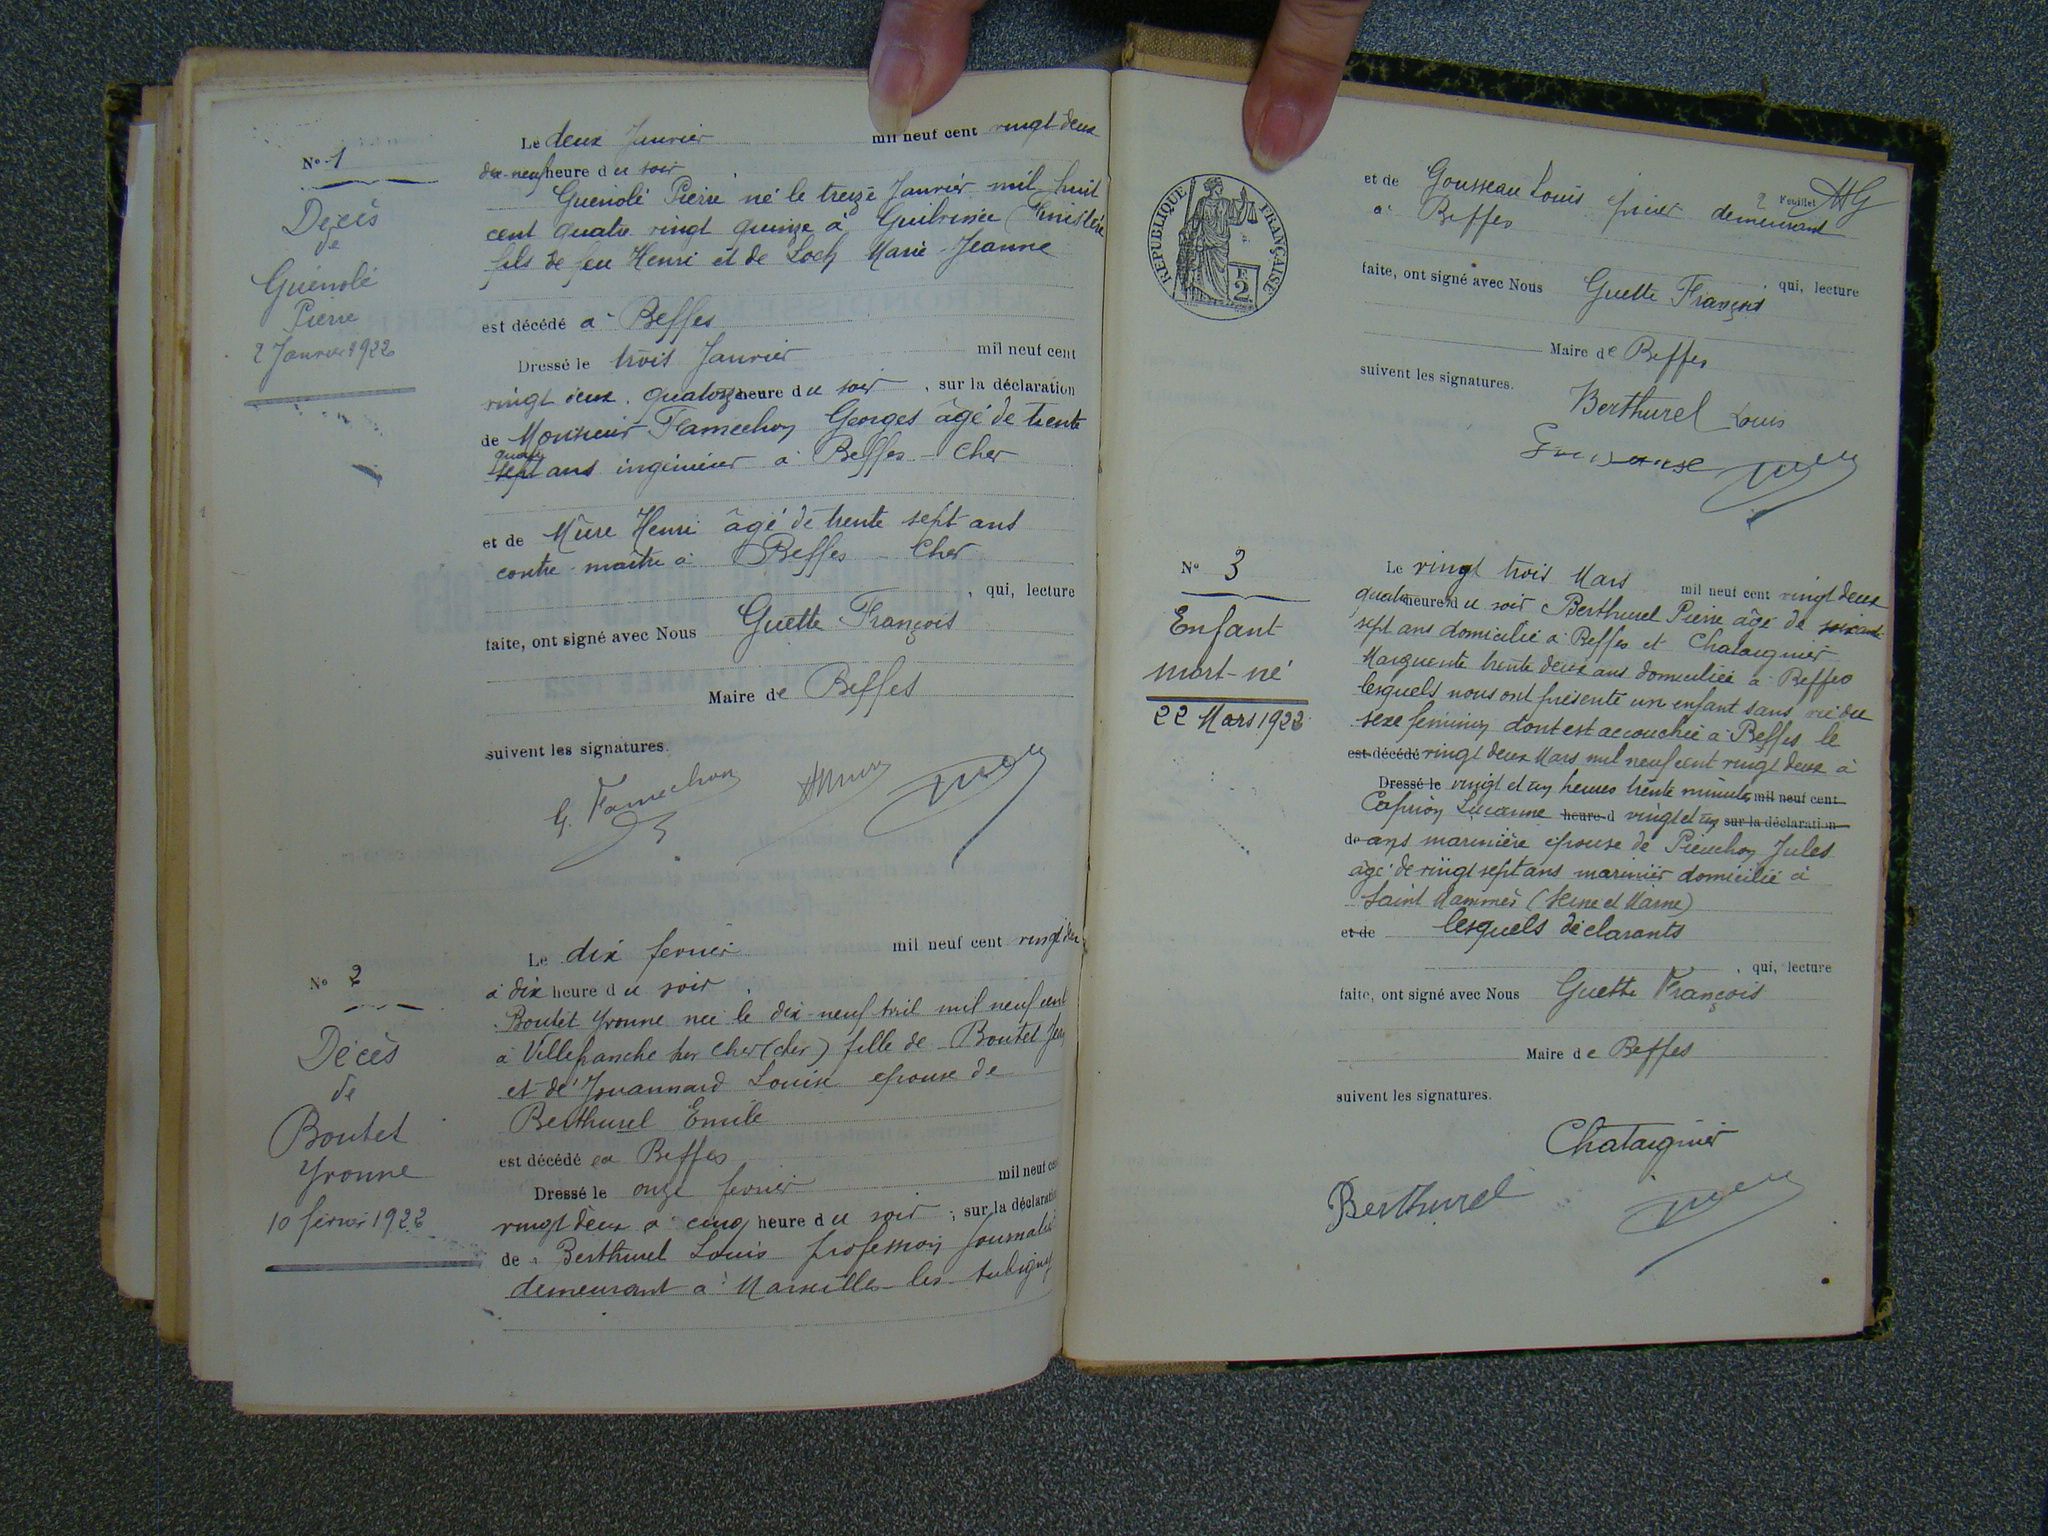 N° 1
Décès
de
Guénolé
Pierre
2 Janvier 1922
Le deux Janvier mil neuf cent vingt deux
dix-neuf heure du soir
Guénolé Pierre né le treize Janvier mil huit
cent quatre vingt quinze à Guilvinec Finistère
fils de feu Henri et de Loch Marie Jeanne
est décédé à Beffes
Dressé le trois Janvier mil neuf cent
vingt deux, quatorze heure du soir, sur la déclaration
de Monsieur Famechon Georges âgé de trente
quatre
sept ans ingénieur à Beffes - Cher
et de Mûre Henri âgé de trente sept ans
contre-maître à Beffes - Cher
, qui, lecture
faite, ont signé avec Nous Guette François
Maire de Beffes
suivent les signatures.
G. Famechon
N° 2
Décès
de
Boutet
Yvonne
10 février 1922
Le dix fevrier mil neuf cent vingt deux
à dix heure du soir
Boutet Yvonne née le dix-neuf avril mil neuf cent
à Villefranche sur Cher (cher) fille de Boutet Jean
et de Jouannard Louise epouse de
Berthurel Emile
est décédé à Beffes
Dressé le onze fevrier mil neuf cent
vingt deux à cinq heure du soir, sur la déclaration
de Berthurel Louis profession Journalier
demeurant à Marseilles-les-Aubigny
2 Feuillet
et de Gousseau Louis demeurant
à Beffes
, qui, lecture
faite, ont signé avec Nous Guette François
Maire de Beffes
suivent les signatures.
Berthurel Louis
REPUBLIQUE FRANÇAISE
2
N° 3
Enfant
mort-né
22 Mars 1922
Le vingt trois Mars mil neuf cent vingt deux
quatre heure du soir Berthurel Pierre âgé de soixante
sept ans domicilié à Beffes et Chataignier
Marguerite trente deux ans domiciliée à Beffes
lesquels nous ont présenté un enfant sans vie du
sexe féminin dont est accouchée à Beffes le
est décédé vingt deux Mars mil neuf cent vingt deux à
Dressé le vingt et un heures trente minutes mil neuf cent
Caprion Lucienne heure d vingt et un sur la déclaration
de ans marinière epouse de Pieuchon Jules
âgé de vingt sept ans marinier domicilié à
Saint Mammès (Seine et Marne)
et de lesquels déclarants
, qui, lecture
faite, ont signé avec Nous Guette François
Maire de Beffes
suivent les signatures.
Chataignier
Berthurel